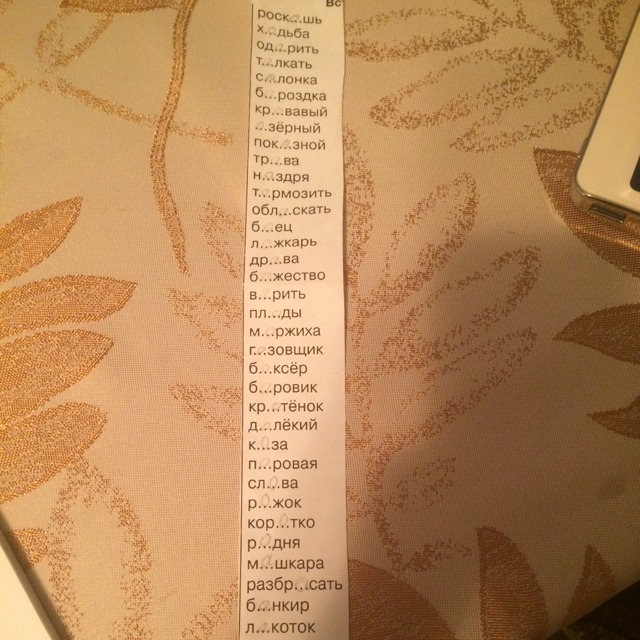 Вс
роск...шь
х...дьба
од...рить
т...лкать
с...лонка
б...роздка
кр...вавый
...зёрный
пок...зной
тр...ва
н...здря
т...рмозить
обл...скать
б...ец
л...жкарь
др...ва
б...жество
в...рить
пл...ды
м...ржиха
г...зовщик
б...ксёр
б...ровик
кр...тёнок
д...лёкий
к...за
п...ровая
сл...ва
р...жок
кор...тко
р...дня
м...шкара
разбр...сать
б...нкир
л...коток